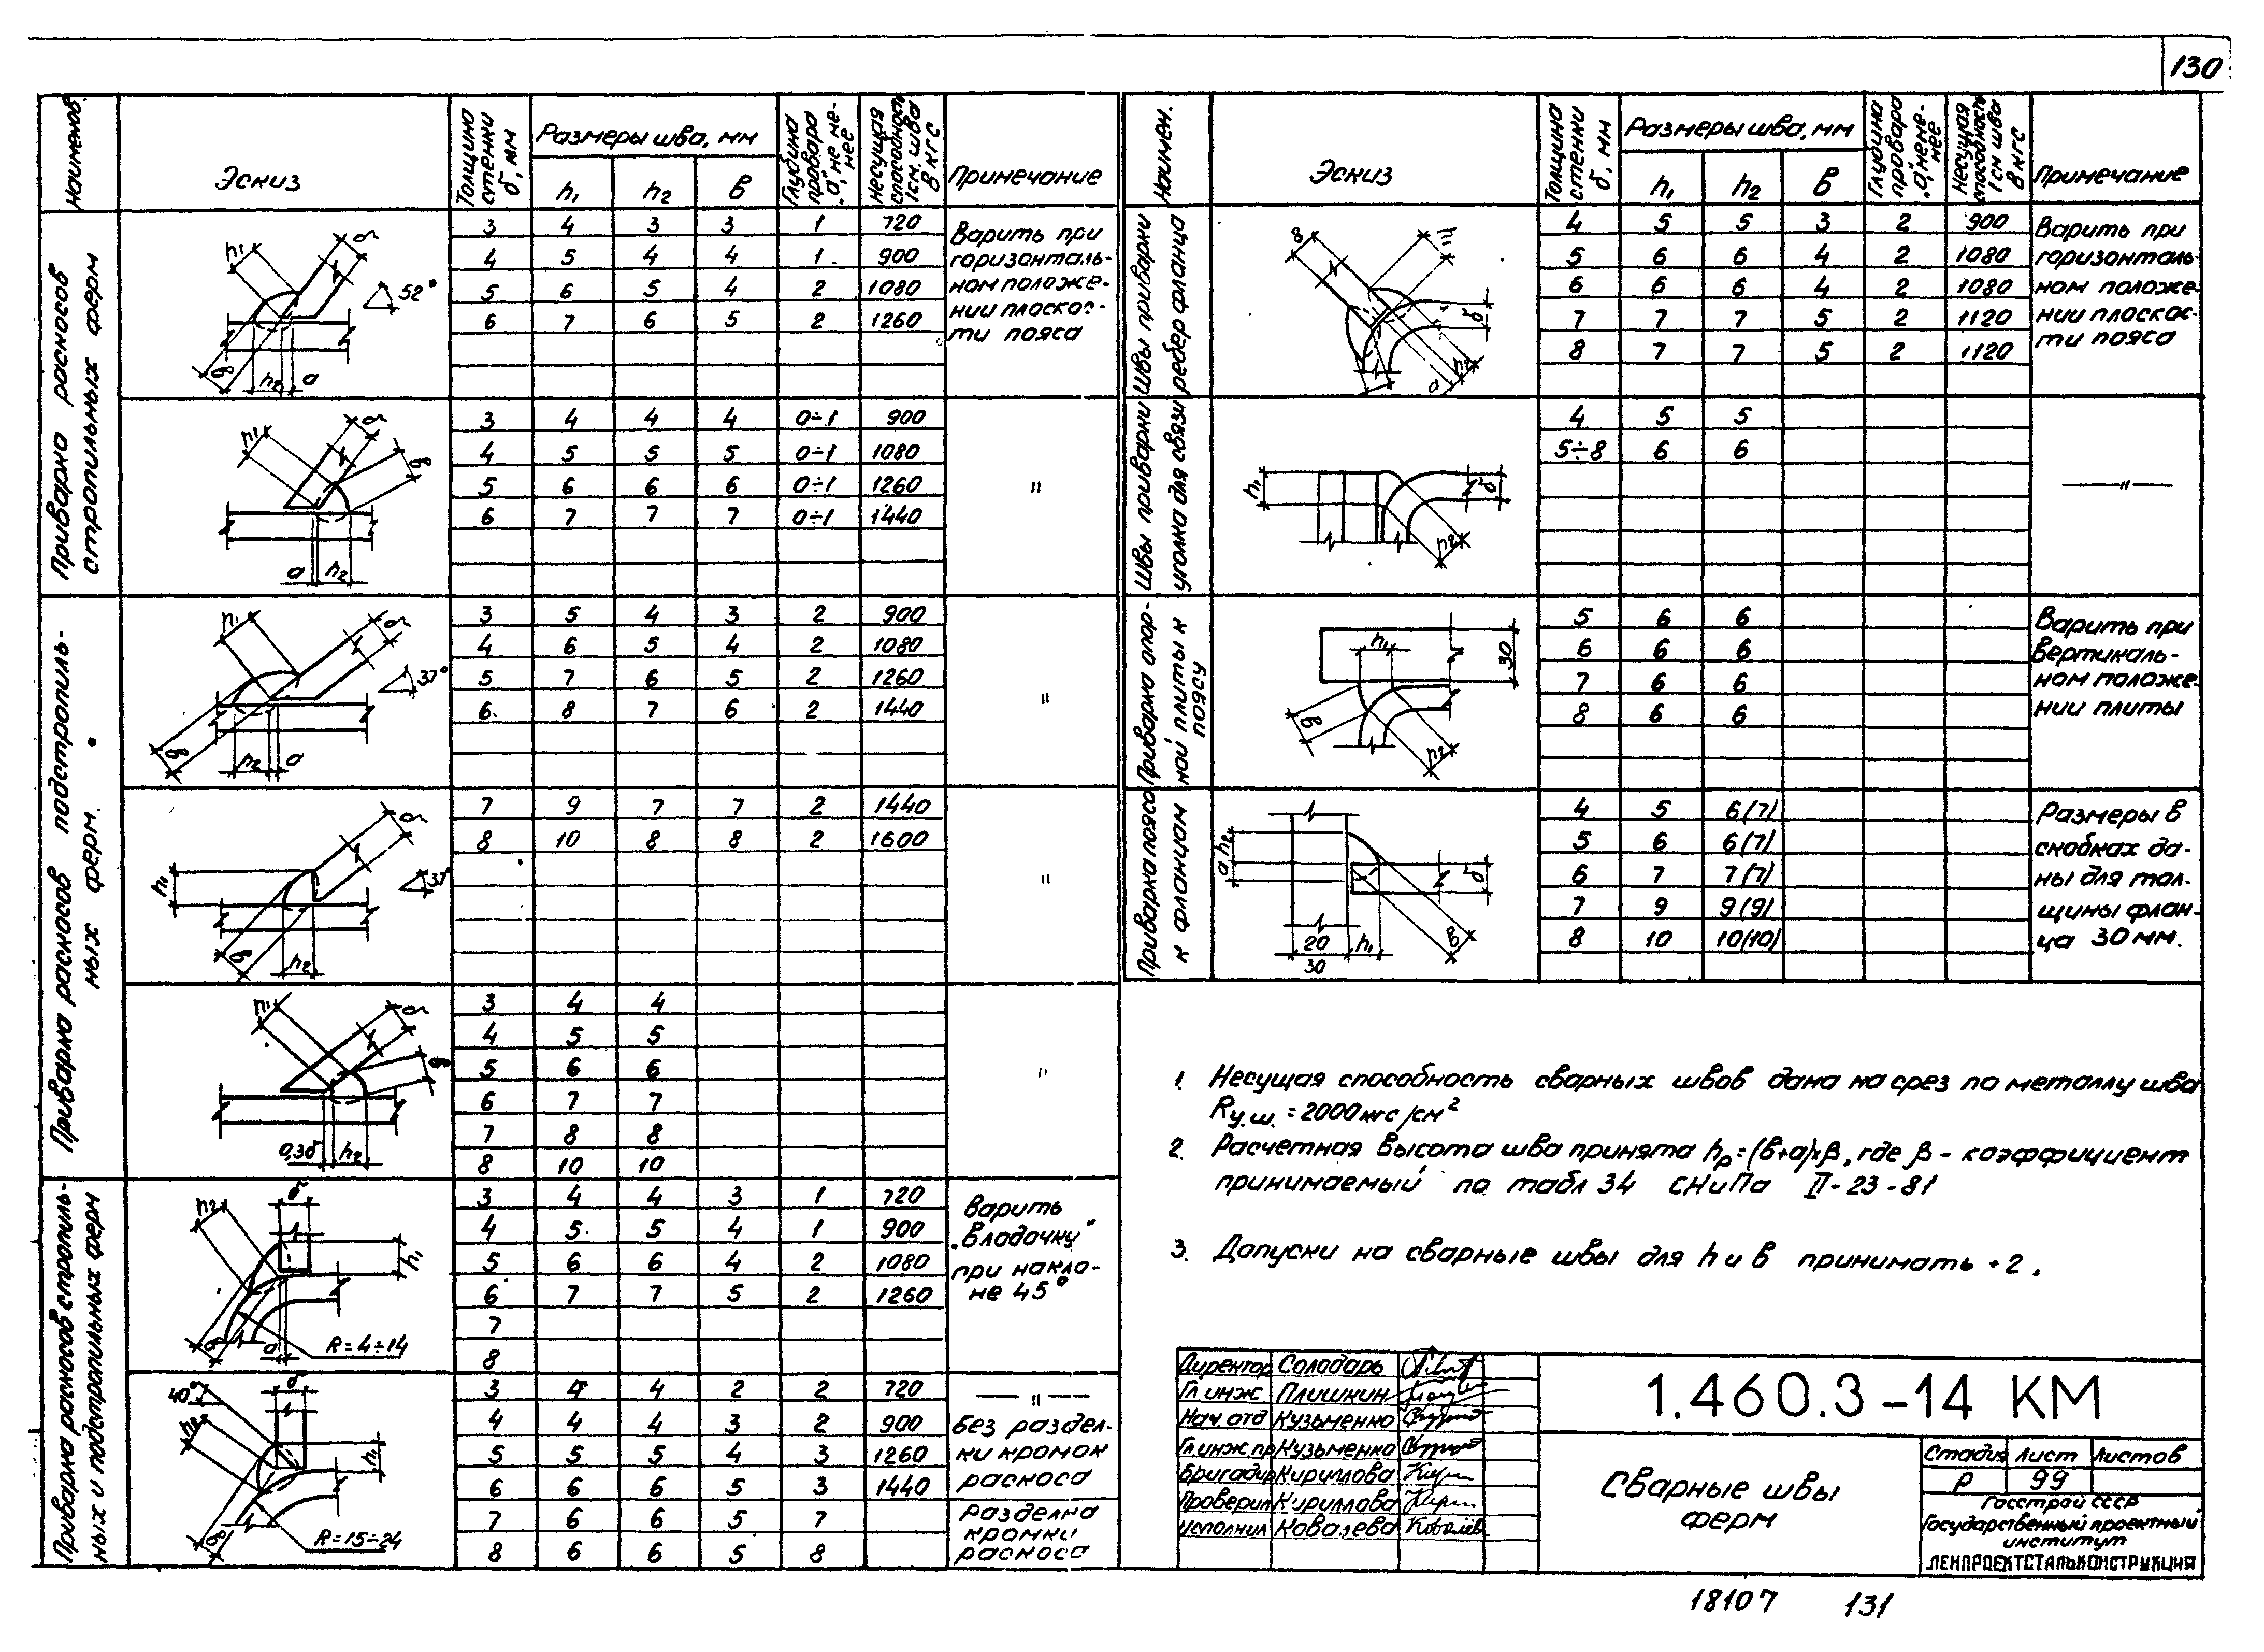 130
Наименов.
Эскиз
Толщина стенки б, мм
Размеры шва, мм
h1 h2 в
Глубина провара "а", не менее
Несущая способность 1см. шва в кгс
Примечание
Приварка раскосов стропильных ферм
h1 б 52° в h2 а
3 4 3 3 1 720
4 5 4 4 1 900
5 6 5 4 2 1080
6 7 6 5 2 1260
Варить при
горизонталь-
ном положе-
нии плоскос-
ти пояса
h1 б в а h2
3 4 4 4 0÷1 900
4 5 5 5 0÷1 1080
5 6 6 6 0÷1 1260
6 7 7 7 0÷1 1440
"
Приварка раскосов подстропиль-
ных ферм.
h1 б 37° в h2 а
3 5 4 3 2 900
4 6 5 4 2 1080
5 7 6 5 2 1260
6 8 7 6 2 1440
"
h1 б 37° в h2
7 9 7 7 2 1440
8 10 8 8 2 1600
"
h1 б в 0,3б h2
3 4 4
4 5 5
5 6 6
6 7 7
7 8 8
8 10 10
"
Приварка раскосов стропиль-
ных и подстропильных ферм
h2 б h1 в а R=4÷14
3 4 4 3 1 720
4 5 5 4 1 900
5 6 6 4 2 1080
6 7 7 5 2 1260
7
8
Варить
"в лодочку"
при накло-
не 45°
40° б h2 h1 в R=15÷24
3 4 4 2 2 720
4 4 4 3 2 900
5 5 5 4 3 1260
6 6 6 5 3 1440
7 6 6 5 7
8 6 6 5 8
— " —
Без раздел-
ки кромок
раскоса
Разделка
кромки
раскоса
Наимен.
Эскиз
Толщина стенки б, мм
Размеры шва, мм
h1 h2 в
Глубина провара "а", не менее
Несущая способность 1 см шва в кгс
Примечание
Швы приварки
ребер фланца
в h1 б h2 а
4 5 5 3 2 900
5 6 6 4 2 1080
6 6 6 4 2 1080
7 7 7 5 2 1120
8 7 7 5 2 1120
Варить при
горизонталь-
ном положе-
нии плоскос-
ти пояса
Швы приварки
уголка для связи
h1 б h2
4 5 5
5÷8 6 6
— " —
Приварка опор-
ной плиты к
поясу
h1 30 в h2
5 6 6
6 6 6
7 6 6
8 6 6
Варить при
вертикаль-
ном положе-
нии плиты
Приварка пояса
к фланцам
а h2 б 20 h1 в
30
4 5 6(7)
5 6 6(7)
6 7 7(7)
7 9 9(9)
8 10 10(10)
Размеры в
скобках да-
ны для тол-
щины флан-
ца 30 мм.
1. Несущая способность сварных швов дана на срез по металлу шва
Rу.ш. = 2000 кгс/см2
2. Расчетная высота шва принята hр=(в+а)×β, где β - коэффициент
принимаемый по табл 34 СНиПа II-23-81
3. Допуски на сварные швы для h и в принимать +2.
Директор Солодарь
Гл.инж. Плишкин
Нач.отд Кузьменко
Гл.инж.пр Кузьменко
Бригадир Кириллова
Проверил Кириллова
Исполнил Ковалева
1.460.3-14 КМ
Сварные швы
ферм
Стадия Лист Листов
Р 99
Госстрой СССР
Государственный проектный
институт
ЛЕНПРОЕКТСТАЛЬКОНСТРУКЦИЯ
18107 131